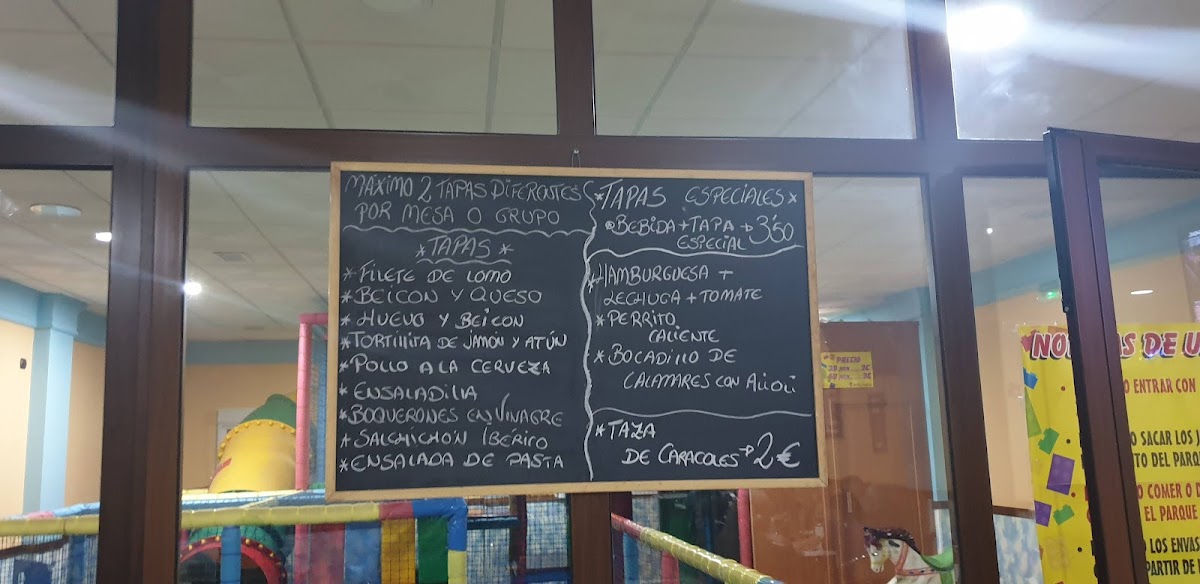 MÁXIMO 2 TAPAS DIFERENTES
POR MESA O GRUPO
*TAPAS*
*FILETE DE LOMO
*BEICON Y QUESO
*HUEVO Y BEICON
*TORTILLITA DE JAMÓN Y ATÚN
*POLLO A LA CERVEZA
*ENSALADILLA
*BOQUERONES EN VINAGRE
*SALCHICHÓN IBÉRICO
*ENSALADA DE PASTA
*TAPAS ESPECIALES*
BEBIDA + TAPA → 3'50
ESPECIAL
*HAMBURGUESA +
LECHUGA + TOMATE
*PERRITO
CALIENTE
*BOCADILLO DE
CALAMARES CON ALIOLI
*TAZA
DE CARACOLES → 2€
PRECIO
NO AS DE U
O ENTRAR CON
O SACAR LOS J
TO DEL PARQU
O COMER O D
EL PARQUE
LOS ENVAS
PARTIR DE